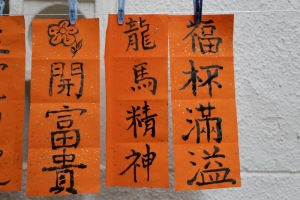 福杯滿溢
龍馬精神
開富貴